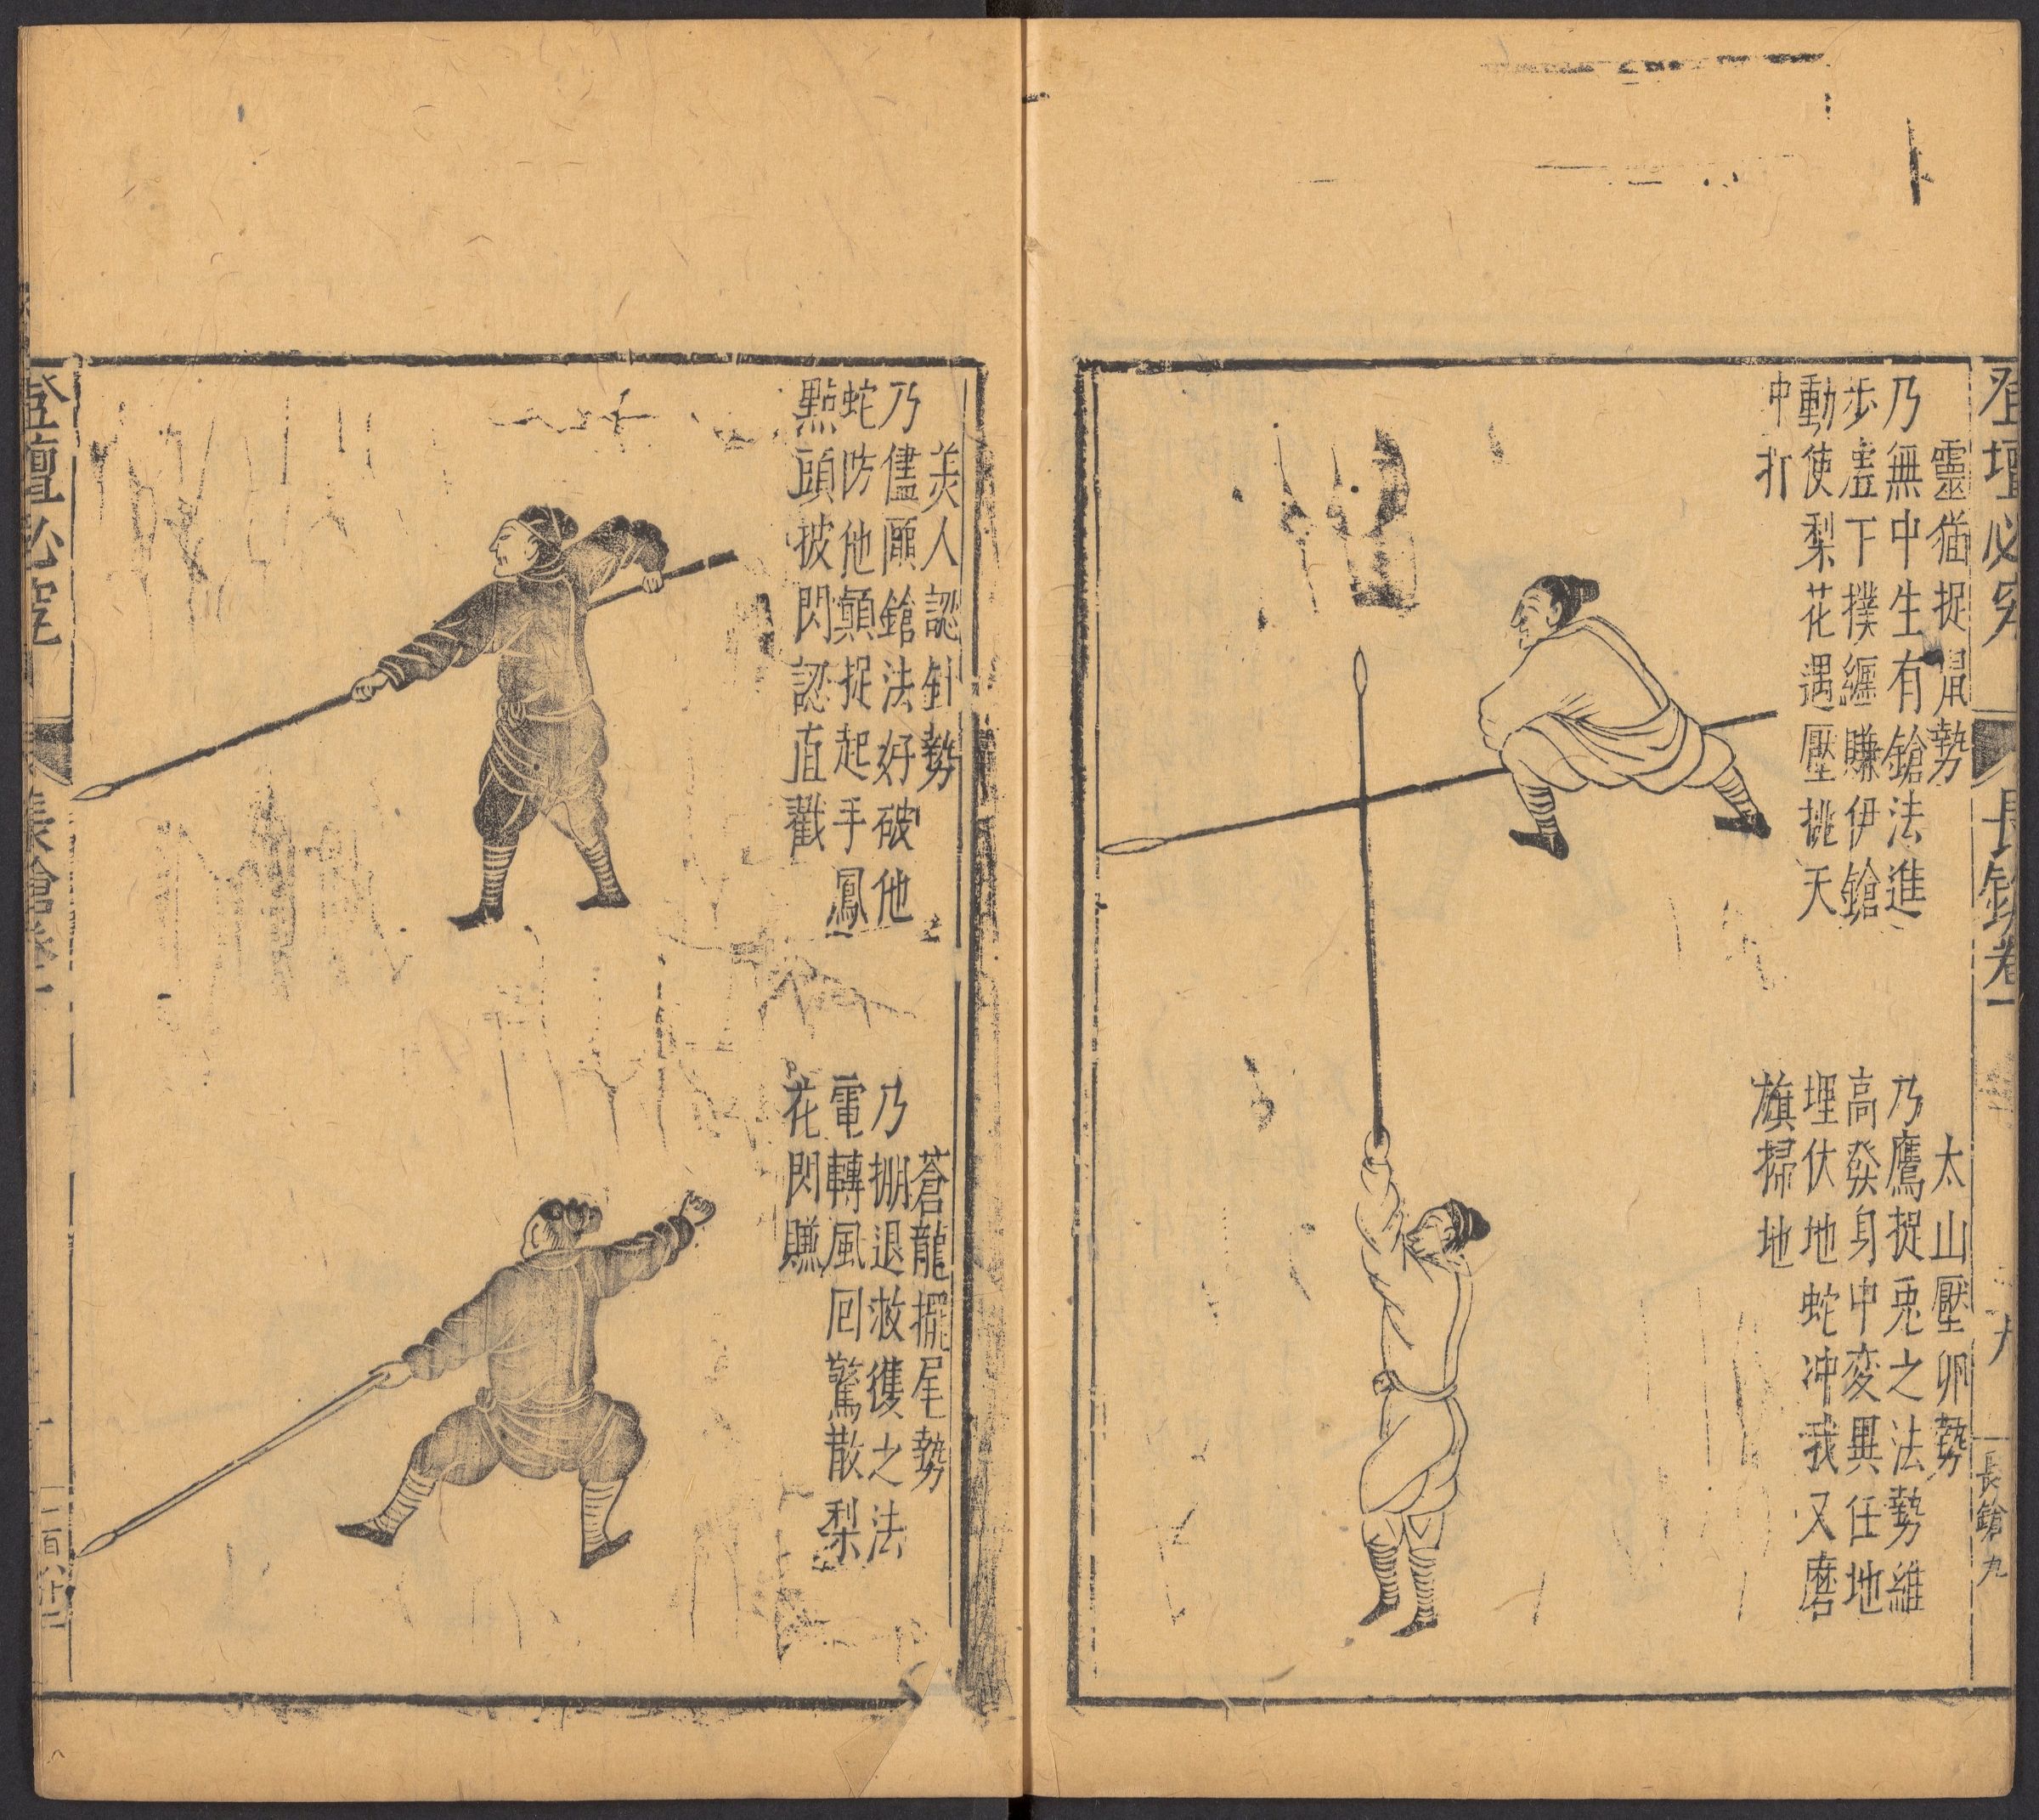 登壇必究
長鎗卷一
九
長鎗九
靈猫捉鼠勢
乃無中生有鎗法進
步虛下撲纏賺伊鎗
動使梨花遇壓挑天
冲打
太山壓卵勢
乃鷹捉兎之法勢維
高發身中変異任地
埋伏地蛇冲我又磨
旗掃地
美人認針勢
乃儘頋鎗法好破他
蛇防他顛捉起手鳳
點頭披閃認直戳
蒼龍擺尾勢
乃掤退救護之法
電轉風回驚散梨
花閃賺
登壇必究
長鎗卷一